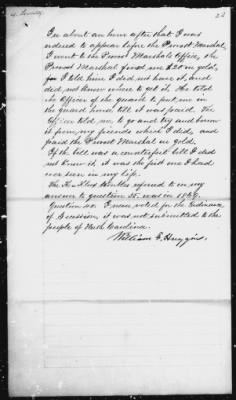 23
In about an hour after that I was
ordered to appear before the Provost Marshal,
I went to the Provost Marshal's office, the
Provost Marshal fined me $20 in gold,
I told him I did not have it, and
did not know where to get it. He told
the Officer of the guard to put me in
the guard house till it was paid. The
Officer told me to go and try and borrow
it from my friends which I did, and
paid the Provost Marshal in gold.
If the bill was a counterfeit bill I did
not know it, it was the first one I had
ever seen in my life.
The refered to in my
answer to question 35. was in 1864.
Question 40. I never voted for the Ordinance
of Secession, it was not submitted to the
people of North Carolina.
William S. Huggins.